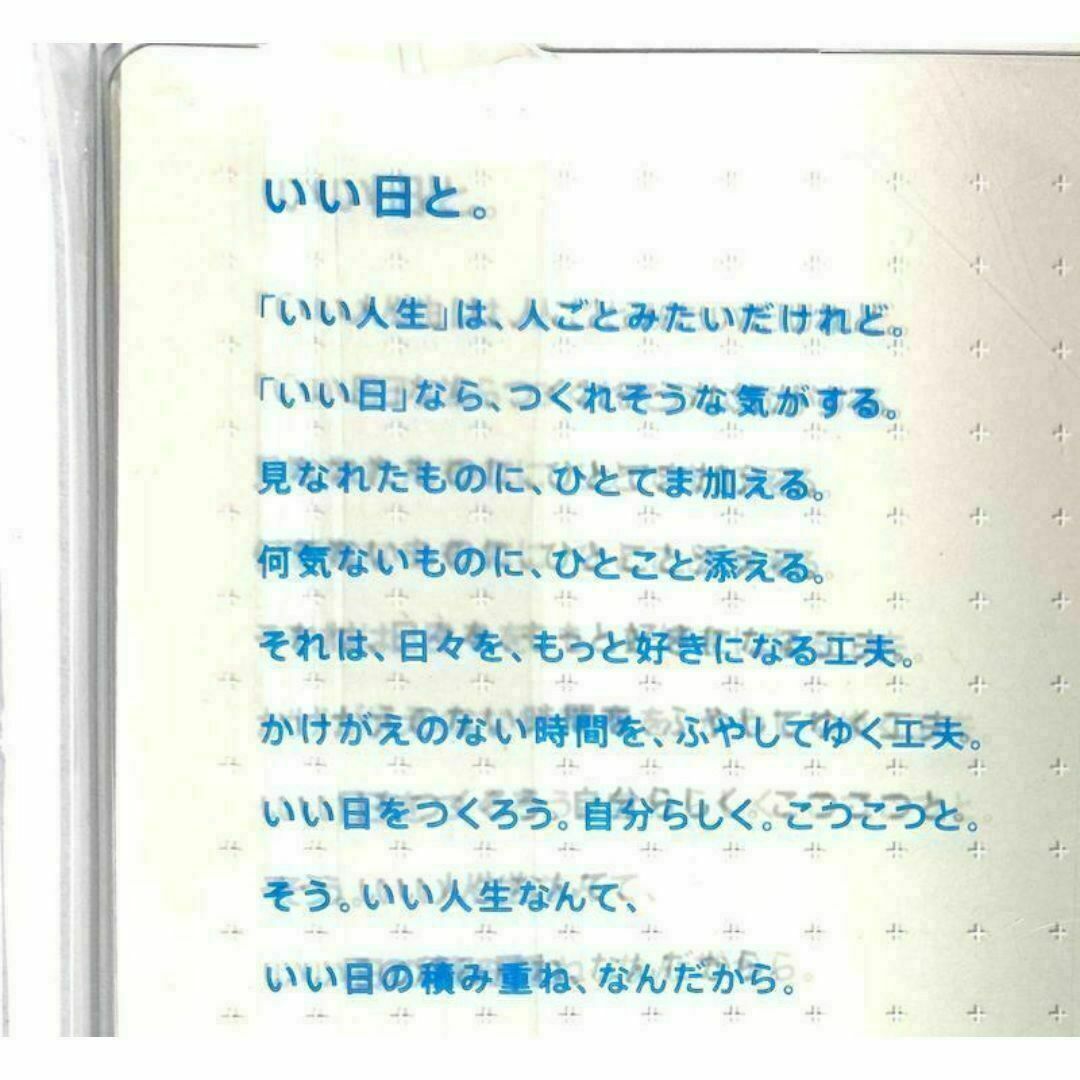 いい日と。
「いい人生」は、人ごとみたいだけれど。
「いい日」なら、つくれそうな気がする。
見なれたものに、ひとてま加える。
何気ないものに、ひとこと添える。
それは、日々を、もっと好きになる工夫。
かけがえのない時間を、ふやしてゆく工夫。
いい日をつくろう。自分らしく。こつこつと。
そう。いい人生なんて、
いい日の積み重ね、なんだから。